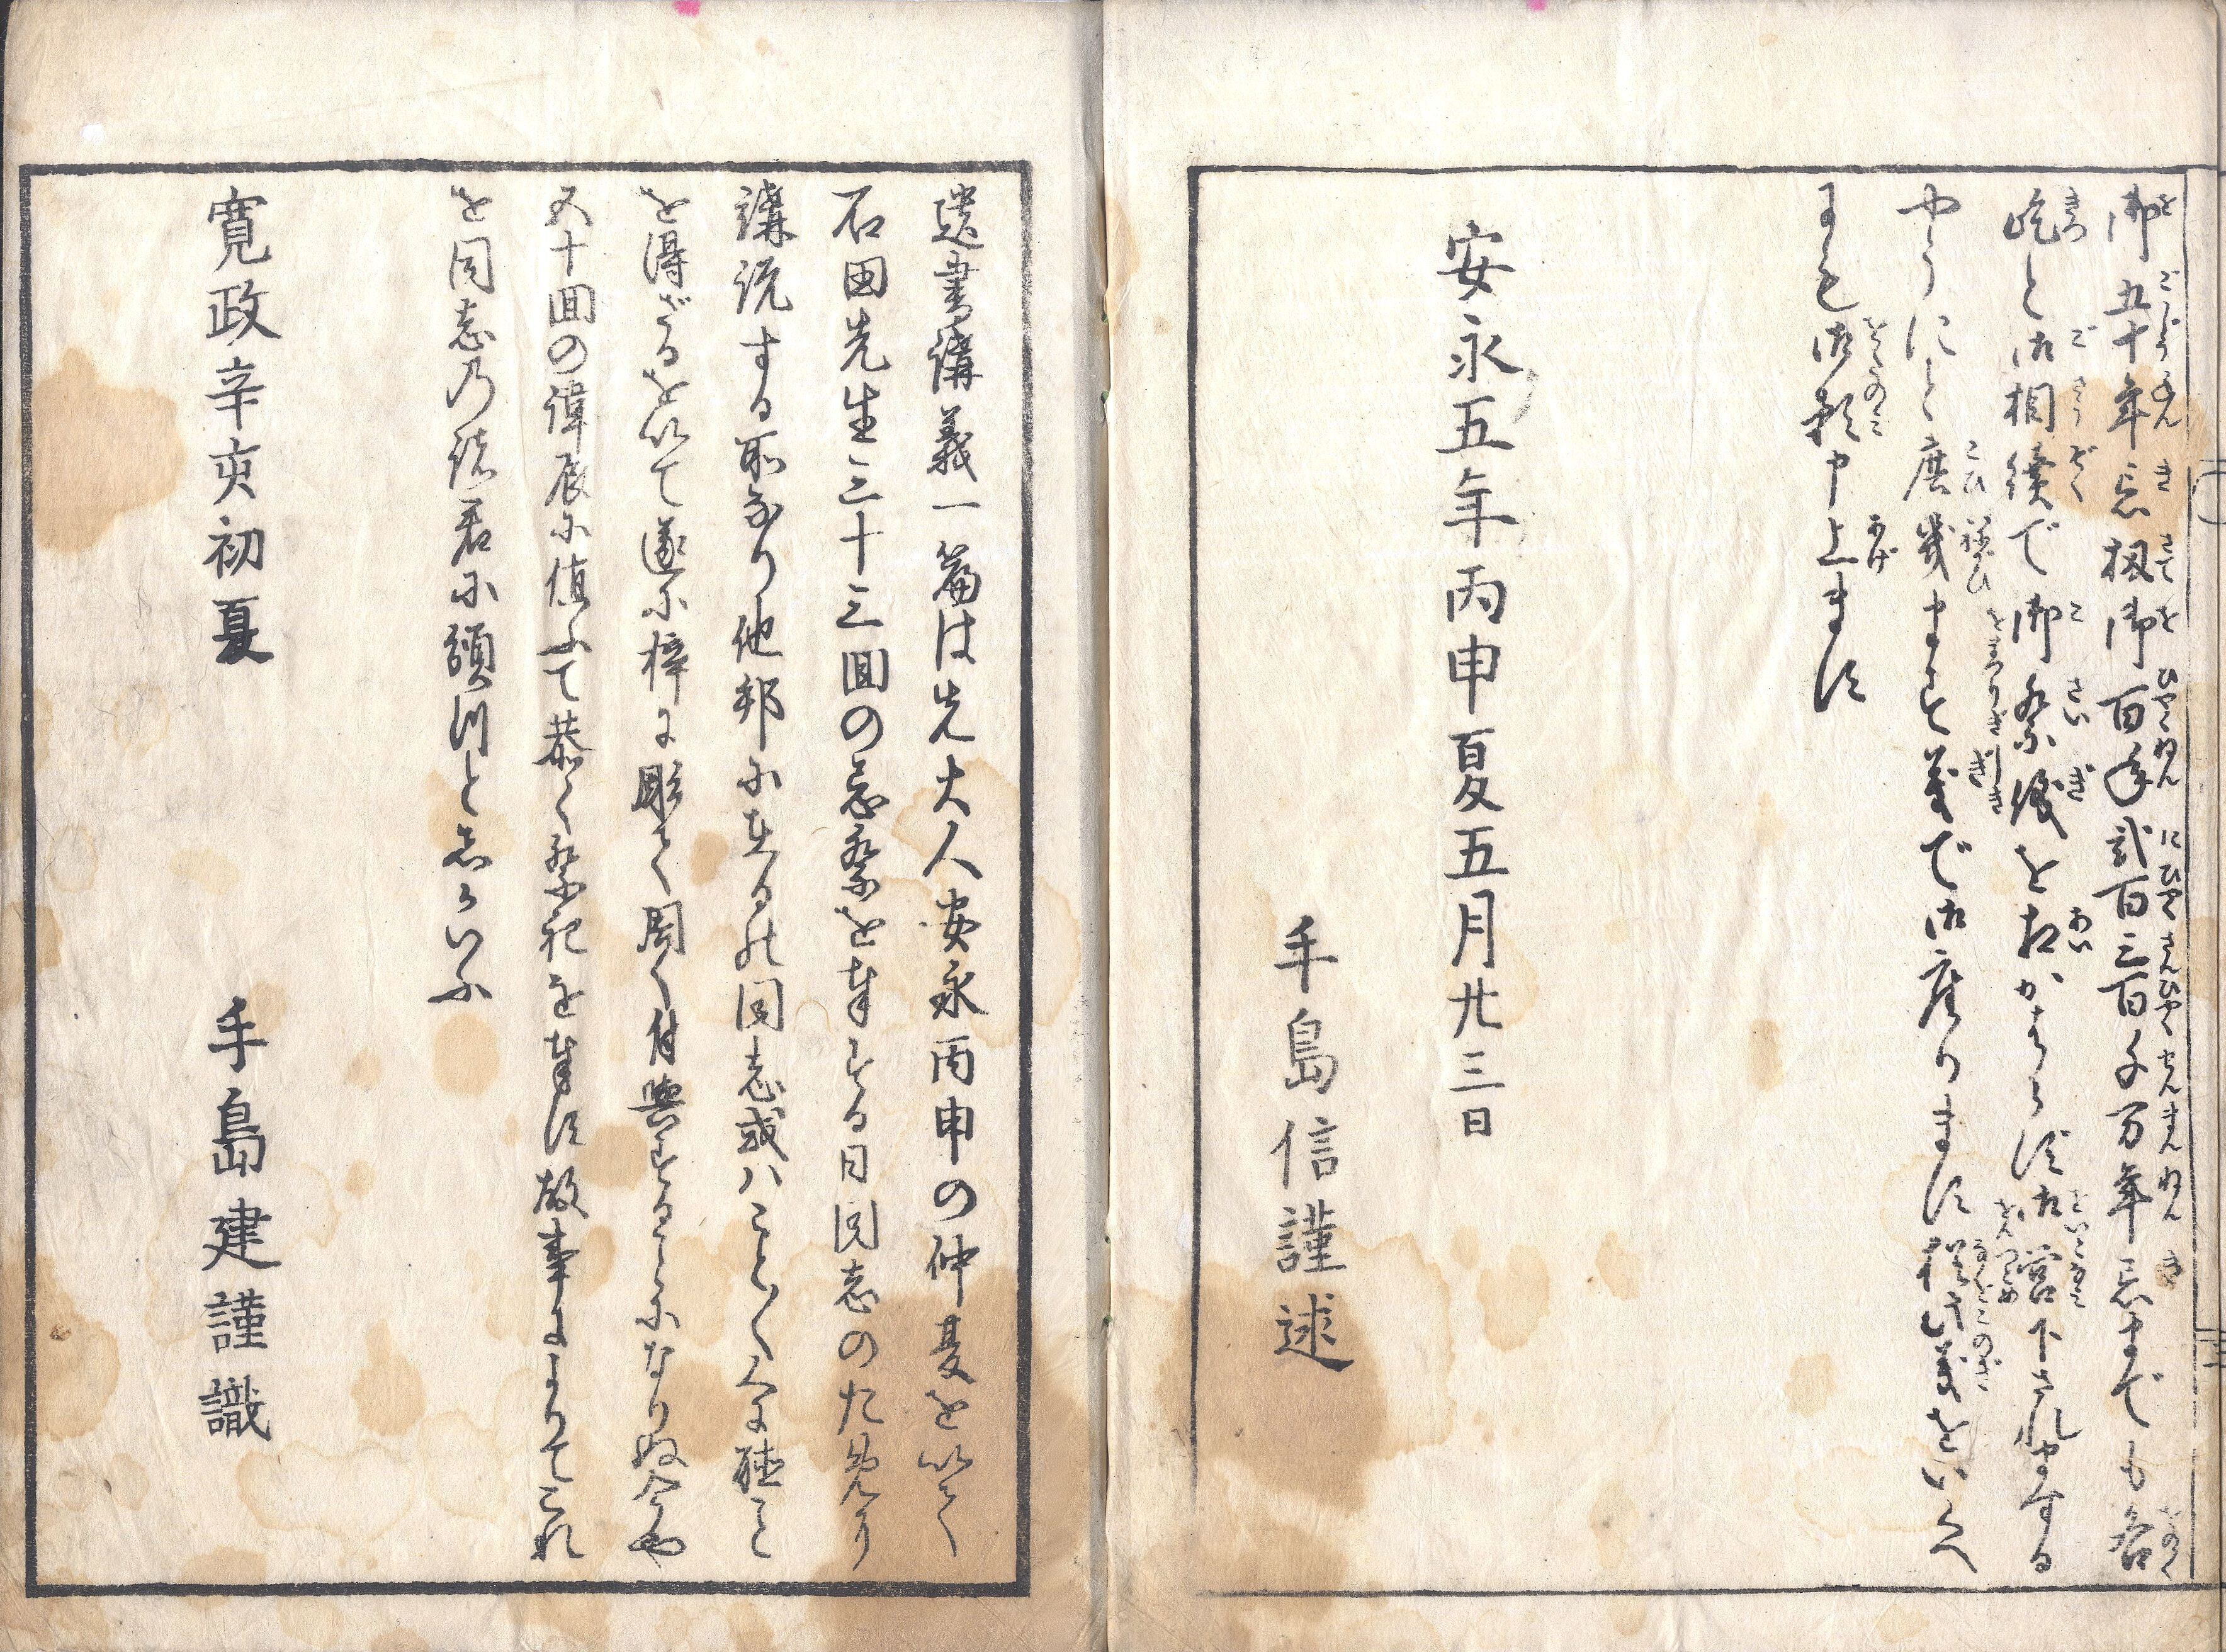 御五十年忌扨御百年弐百三百千万年忌までも各
屹と御相續で御祭儀を相かはらず御営下されまする
やうにと庶幾まする義で御座ります猶此義をいくへ
にも御頼申上ます
安永五年丙申夏五月廿三日
手島信謹述
遺書講義一篇は先大人安永丙申の仲夏を以て
石田先生三十三回の忌祭を奉する日同志のため
講説する所なり他邦に在るの同志或ハこと〳〵く聴こと
を得ざるを以て遂に梓に彫て周く付與することになりぬ今や
五十回の諱辰に値ふて恭く祭祀を奉ず故事によりてこれ
を同志の諸君に頒つと志かいふ
寛政辛亥初夏
手島建謹識